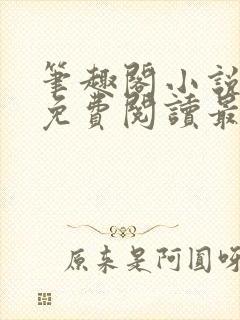 筆趣閣小說
免費閱讀最
原來是阿圓呀